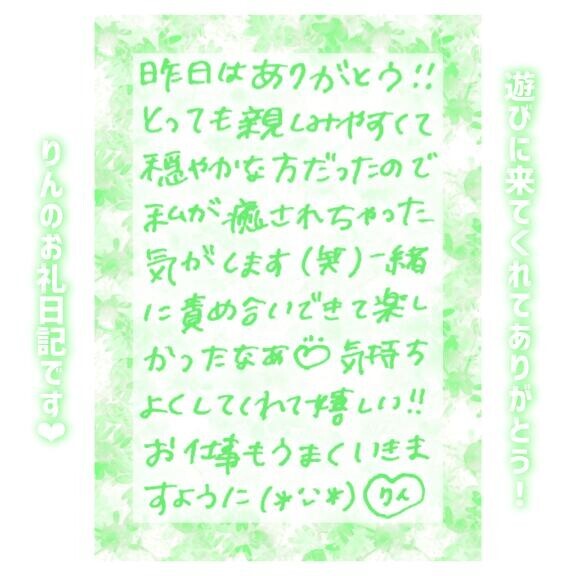 遊びに来てくれてありがとう！
昨日はありがとう!!
とっても親しみやすくて
穏やかな方だったので
私が癒されちゃった
気がします(笑)一緒
に責め合いできて楽し
かったなぁ♡気持ち
よくしてくれて嬉しい!!
お仕事もうまくいきま
すように(*¨*)りん
りんのお礼日記です❤